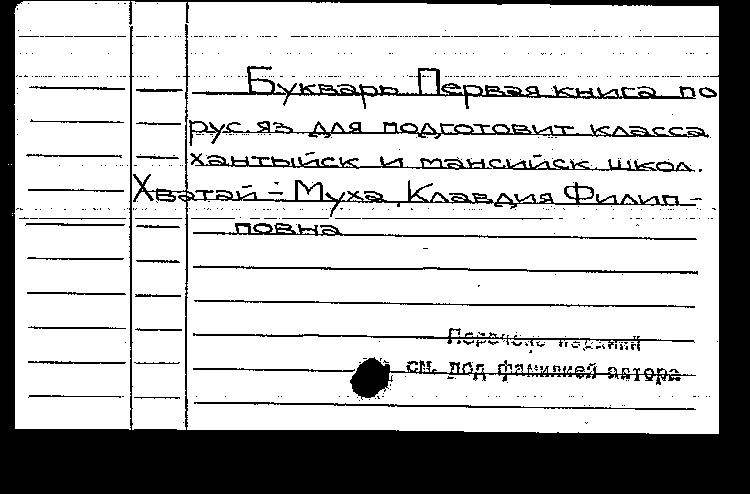 Букварь Первая книга по
рус. яз для подготовит. класса
хантыйск и мансийск школ.
Хватай-Муха, Клавдия Филип-
повна
Перечень изданий
см. под фамилией автора